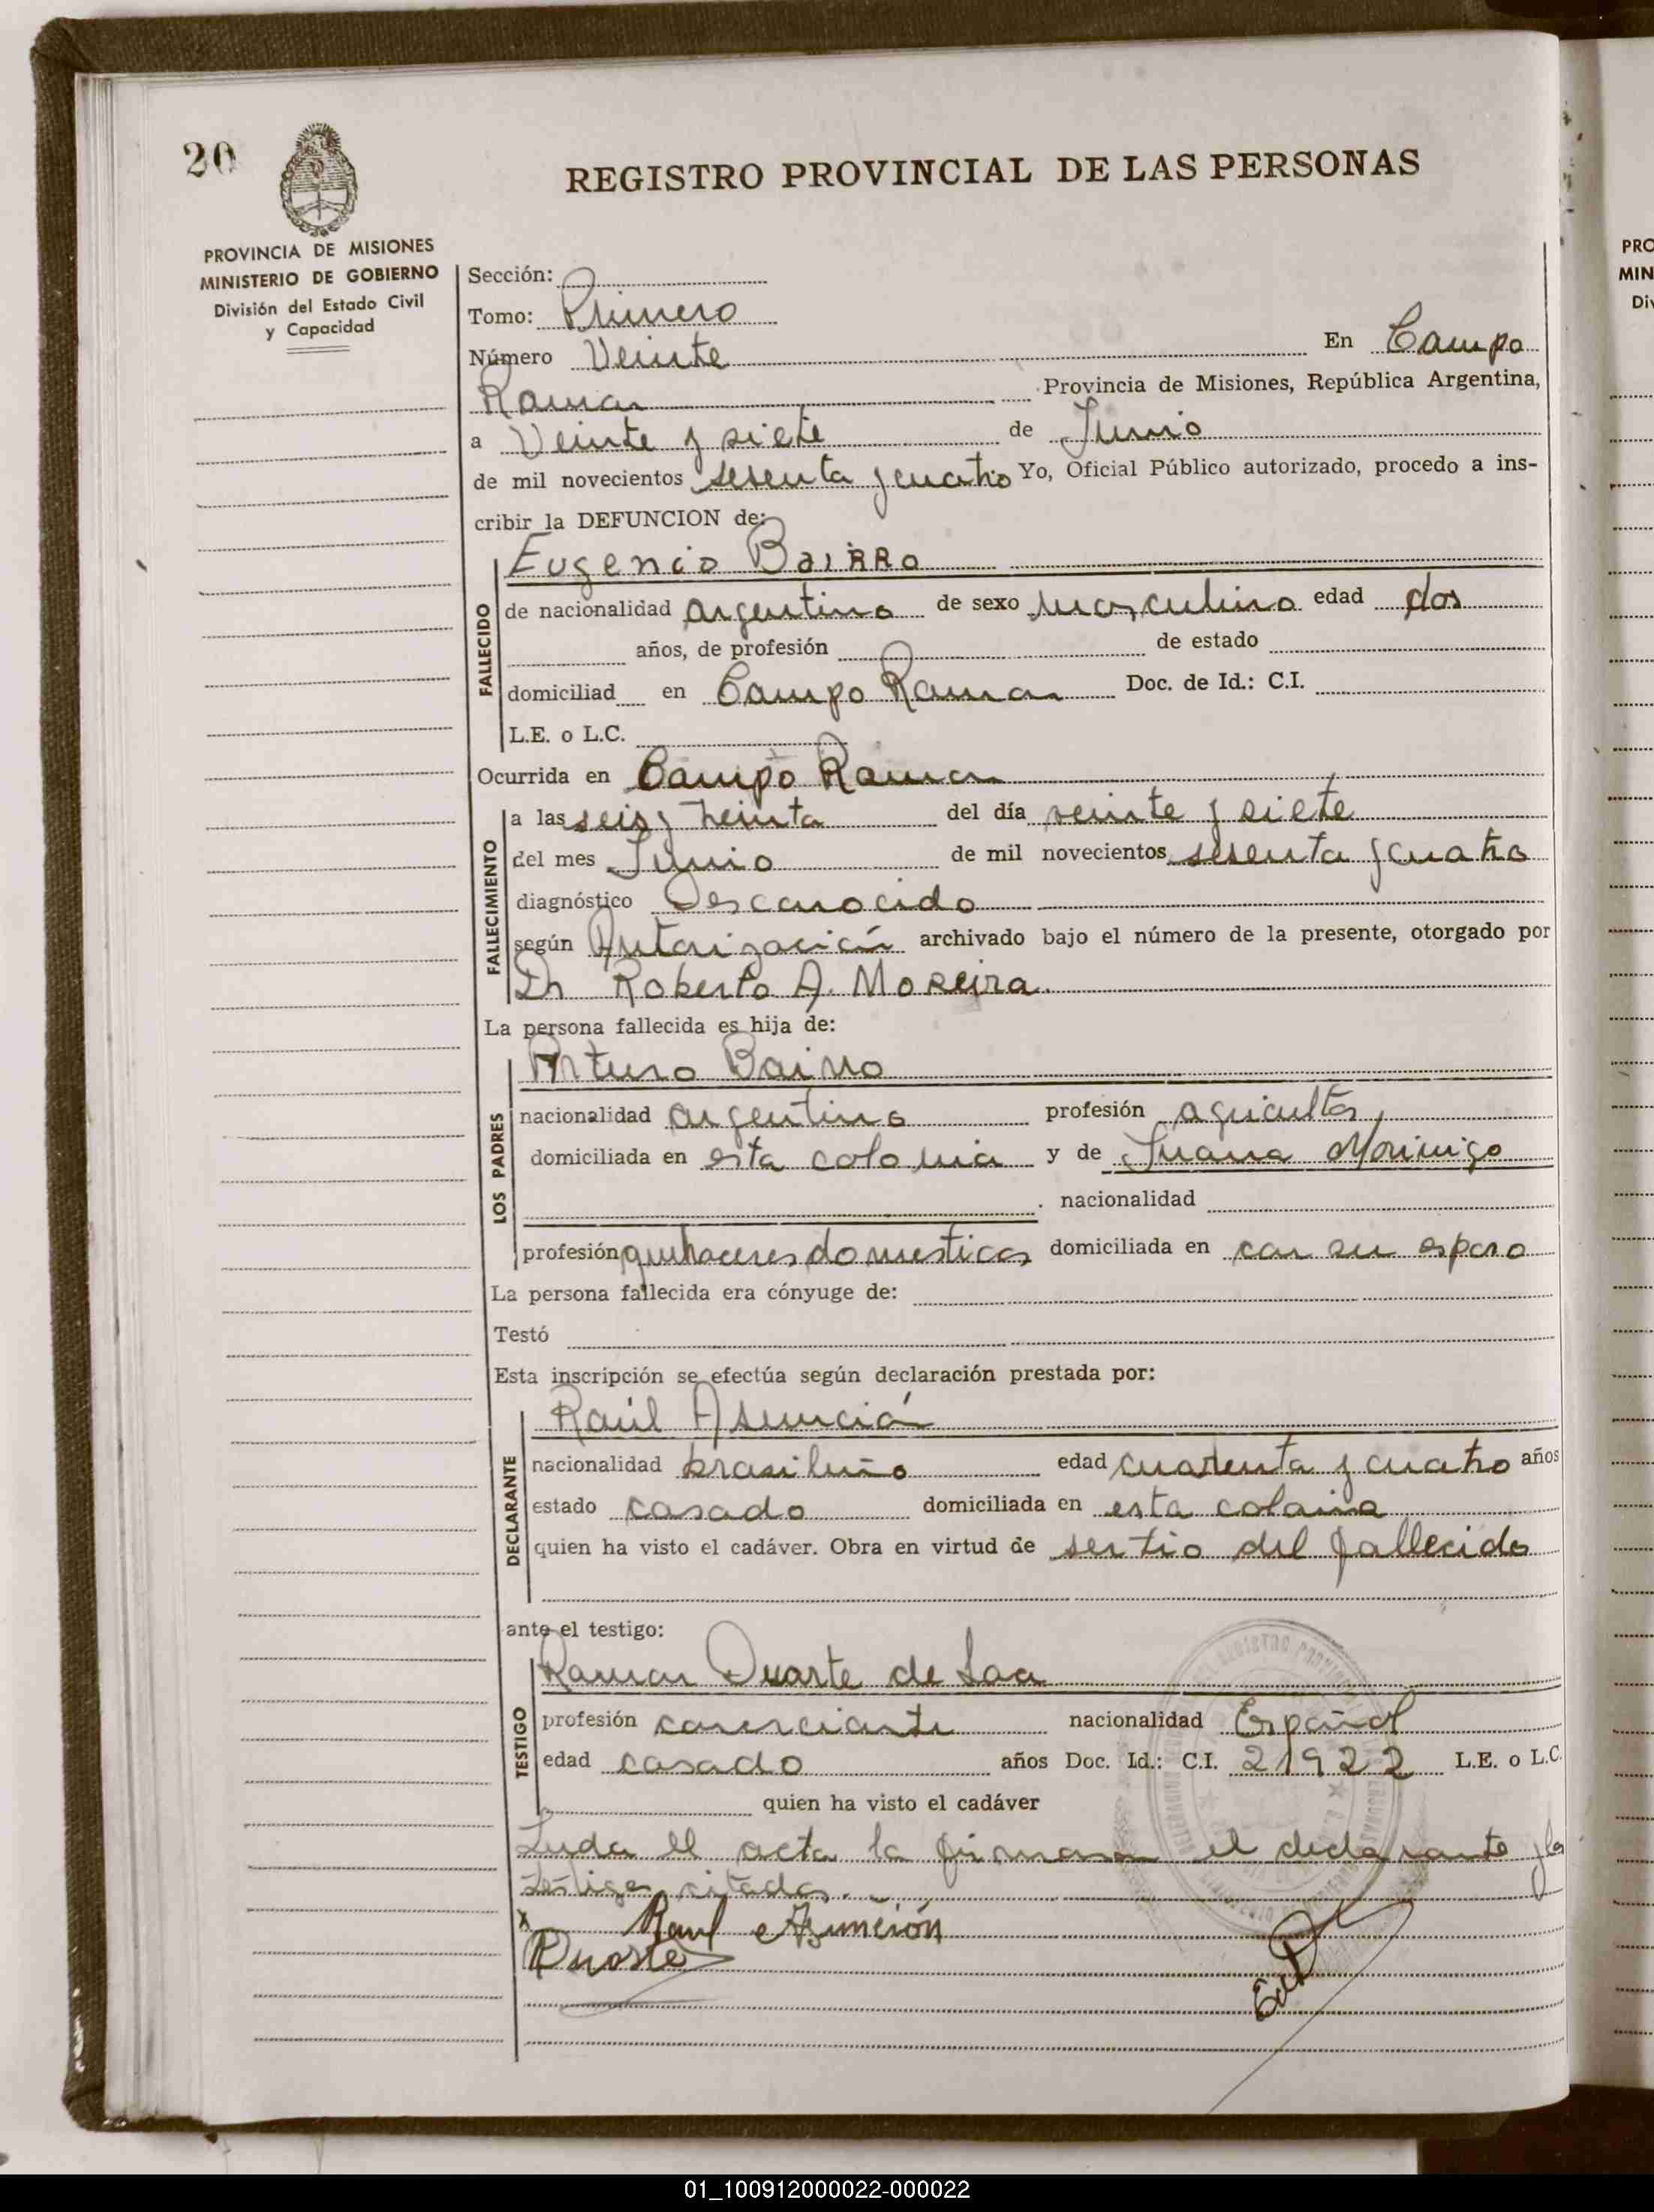 20
REGISTRO PROVINCIAL DE LAS PERSONAS
PROVINCIA DE MISIONES
MINISTERIO DE GOBIERNO
División del Estado Civil
y Capacidad
Sección:
Tomo: Primero
Número Veinte En Campo
Ramon Provincia de Misiones, República Argentina,
a Veinte y siete de Junio
de mil novecientos sesenta y cuatro Yo, Oficial Público autorizado, procedo a ins-
cribir la DEFUNCION de:
Eugenio BaiRRo
FALLECIDO
de nacionalidad argentino de sexo masculino edad dos
años, de profesión de estado
domiciliad en Campo Ramon Doc. de Id.: C.I.
L.E. o L.C.
Ocurrida en Campo Ramon
FALLECIMIENTO
a las seis y treinta del día veinte y siete
del mes Junio de mil novecientos sesenta y cuatro
diagnóstico Desconocido
según Autorización archivado bajo el número de la presente, otorgado por
Dr Roberto A. Moreira.
La persona fallecida es hija de:
Arturo Bairro
LOS PADRES
nacionalidad argentino profesión agricultor
domiciliada en esta colonia y de Juana Morinigo
nacionalidad
profesión quehaceres domesticos domiciliada en con su esposo
La persona fallecida era cónyuge de:
Testó
Esta inscripción se efectúa según declaración prestada por:
Raúl Asunción
DECLARANTE
nacionalidad brasileño edad cuarenta y cuatro años
estado casado domiciliada en esta colonia
quien ha visto el cadáver. Obra en virtud de ser tio del fallecido
ante el testigo:
Ramon Duarte de Saa
TESTIGO
profesión comerciante nacionalidad Español
edad casado años Doc. Id.: C.I. 21922 L.E. o L.C.
quien ha visto el cadáver
Leida el acta la firman el declarante y los
testigos citados.
x Raul Asunción
Duarte
PRO
MIN
Div
01_100912000022-000022